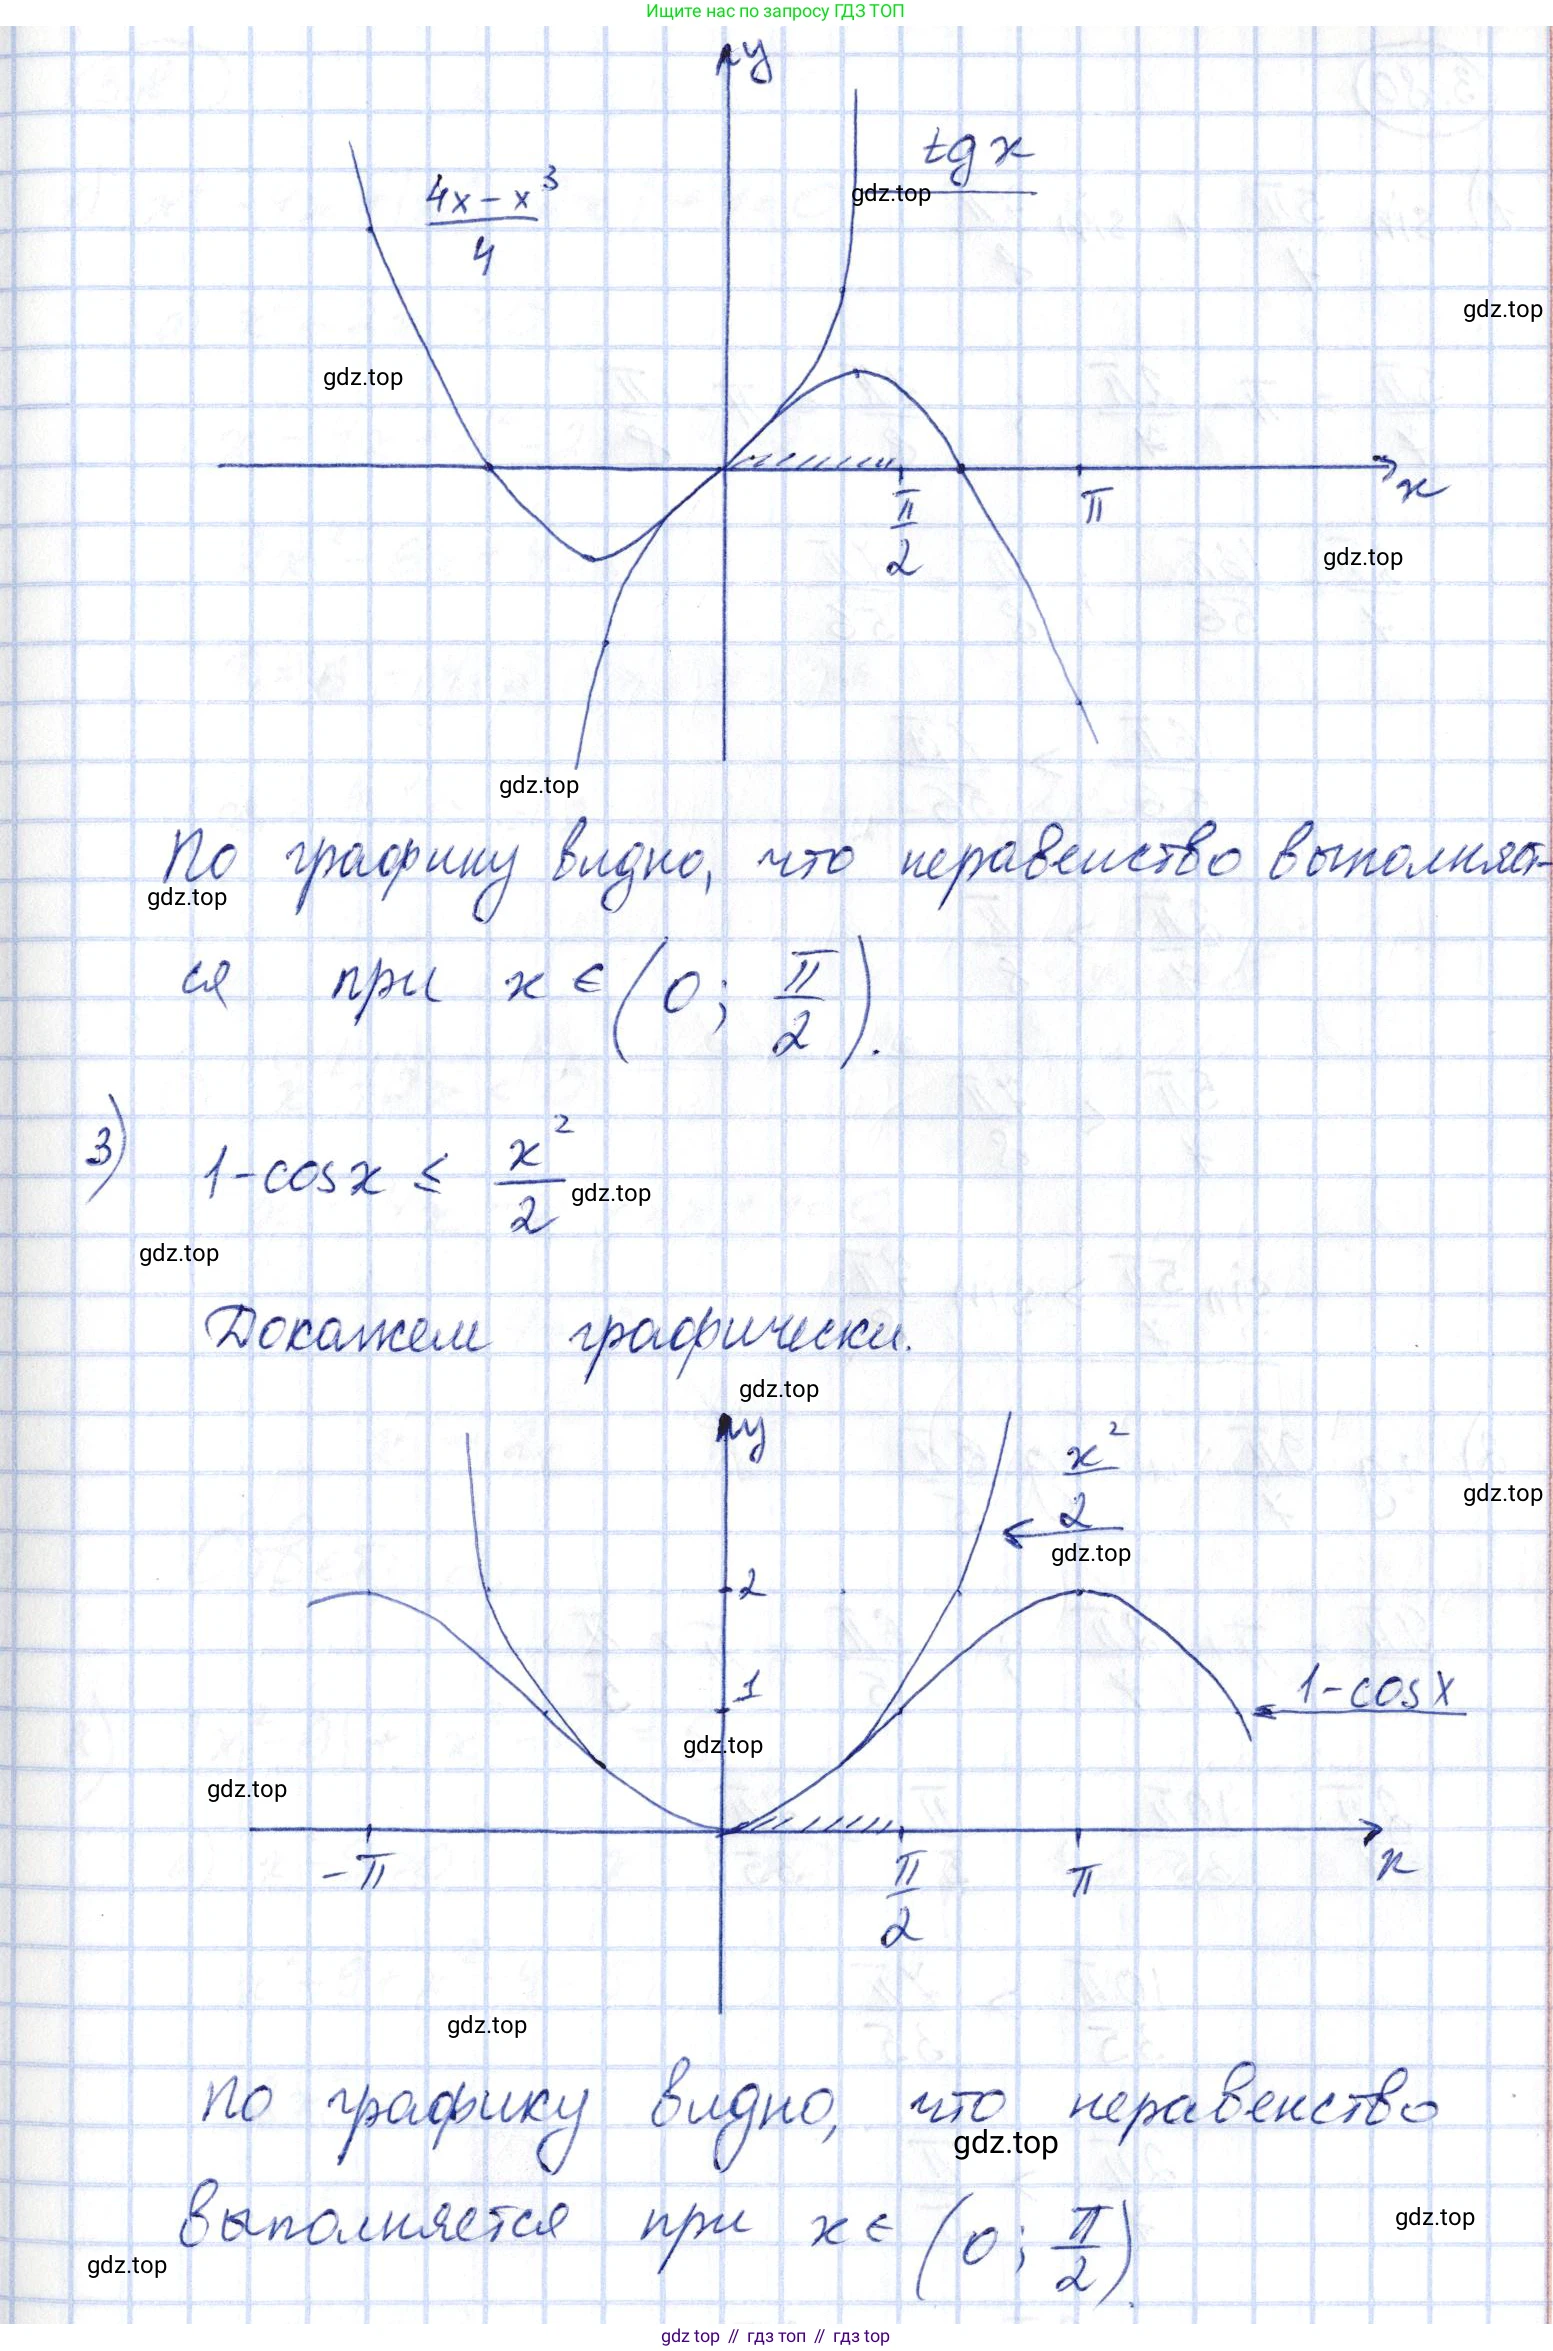 Ищите нас по запросу ГДЗ ТОП
y
tg x
gdz.top
4x - x³
4
gdz.top
gdz.top
π
2
π
x
gdz.top
gdz.top
По графику видно, что неравенство выполняет-
gdz.top
ся при x ∈ (0; π/2).
3) 1-cosx ≤ x²/2
gdz.top
gdz.top
Докажем графически.
gdz.top
y
x²
2
gdz.top
gdz.top
2
1
1-cosx
gdz.top
gdz.top
-π
π
2
π
x
gdz.top
По графику видно, что неравенство
gdz.top
выполняется при x ∈ (0; π/2).
gdz.top
gdz.top
gdz top // гдз топ // гдз top